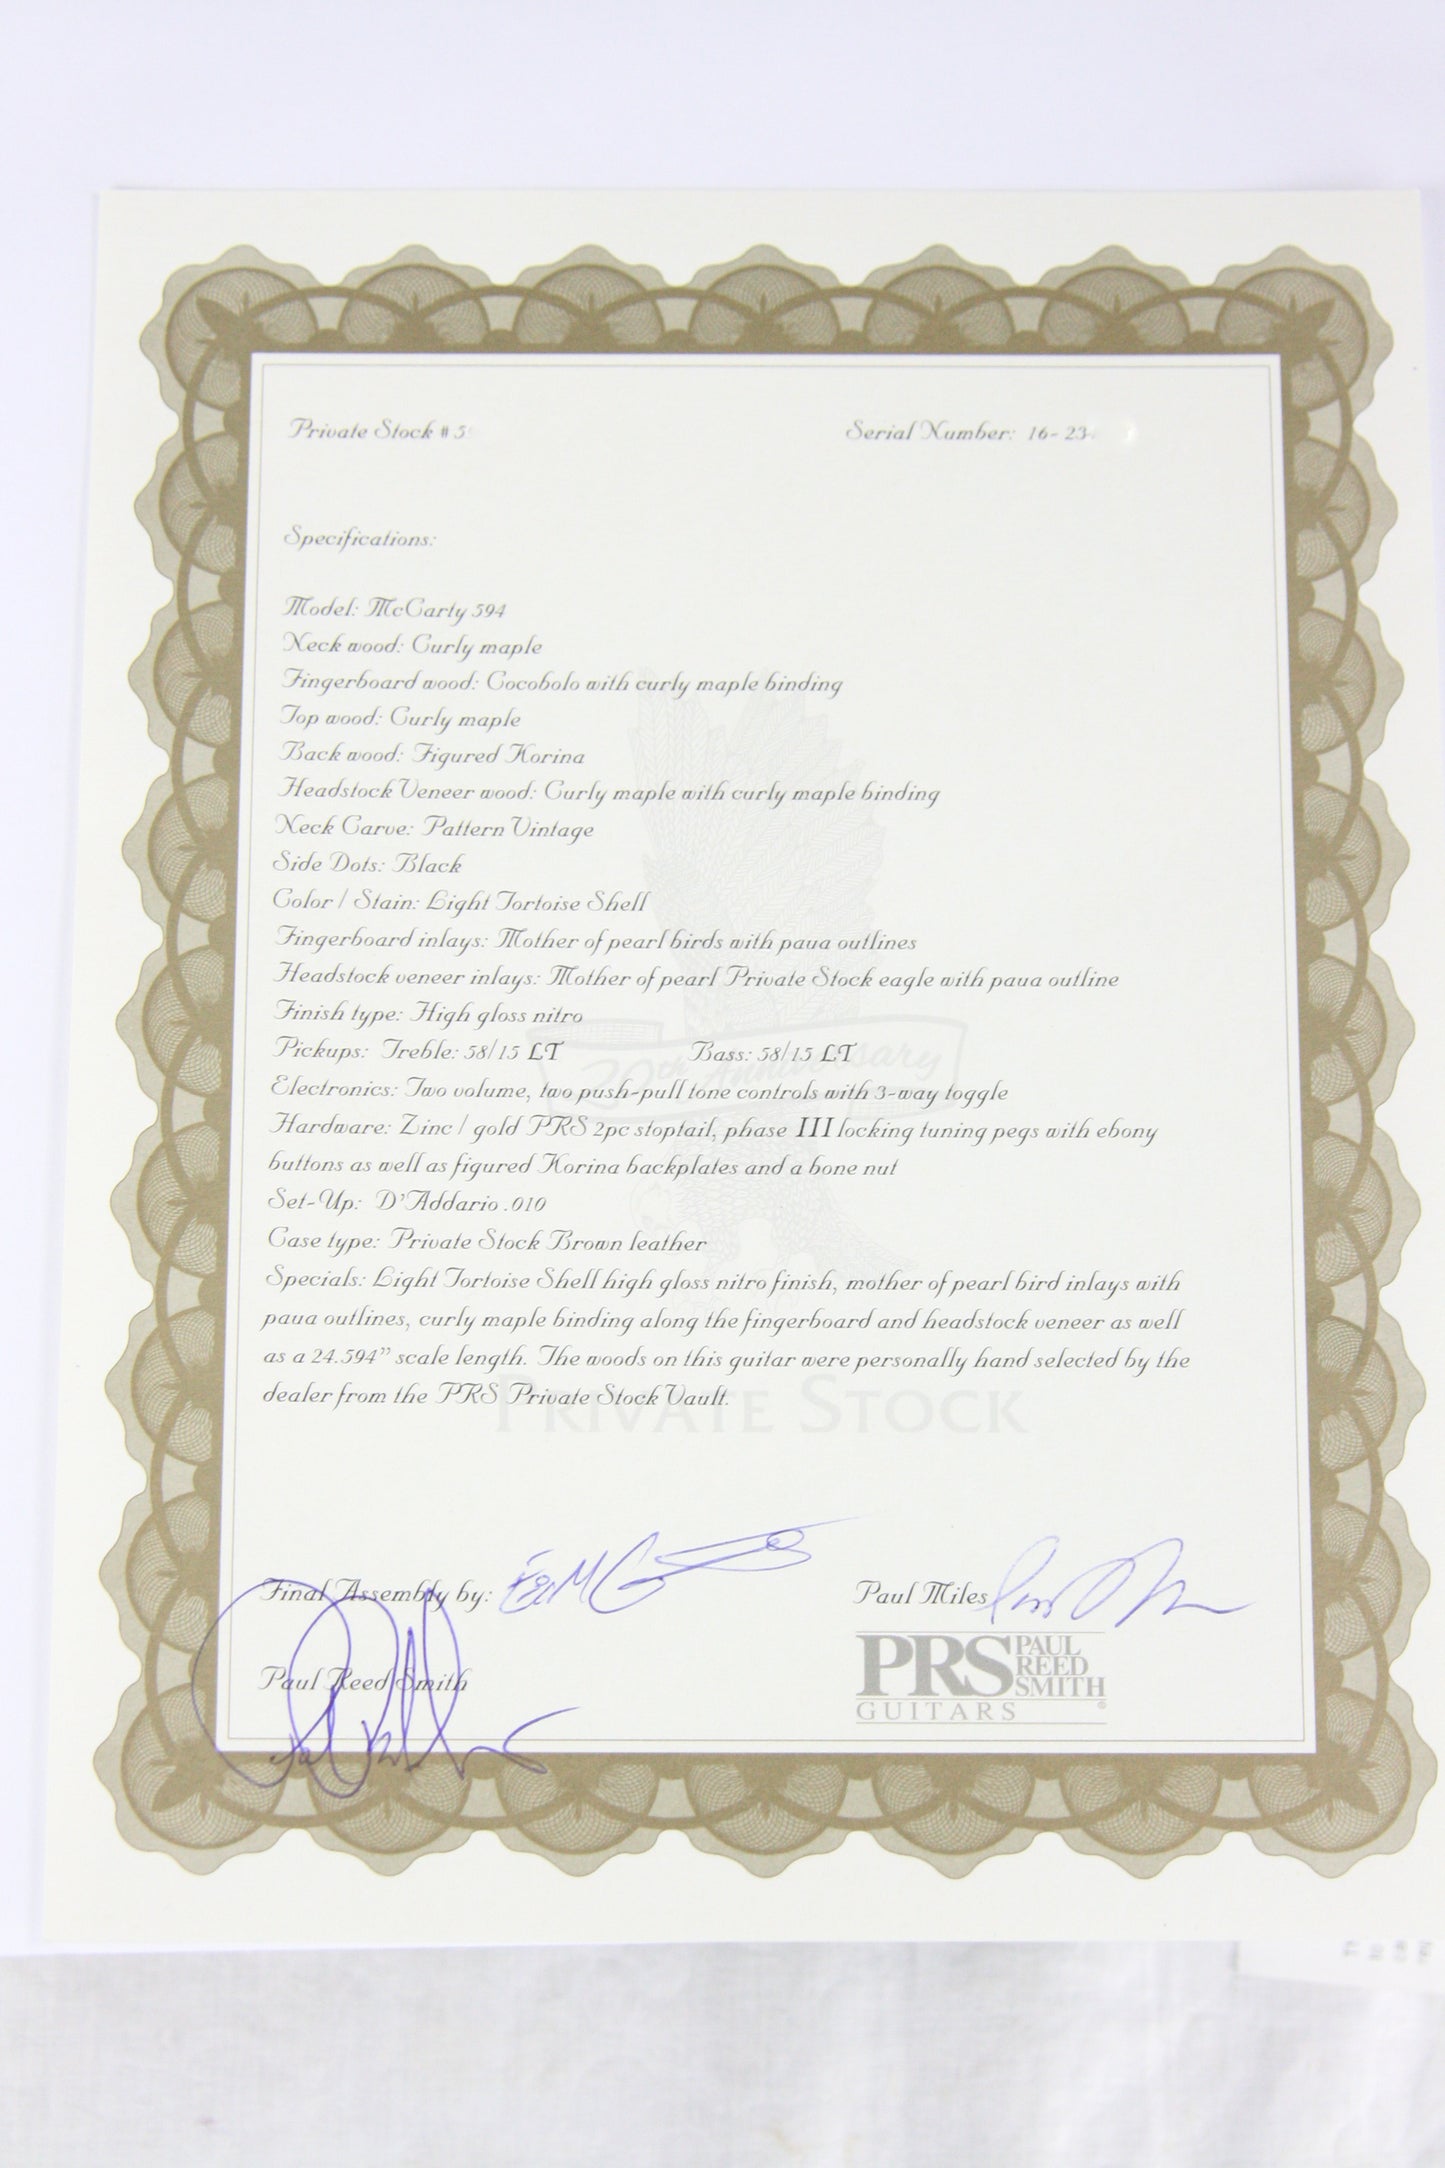 Private Stock # 5
Serial Number: 16- 23
Specifications:
Model: McCarty 594
Neck wood: Curly maple
Fingerboard wood: Cocobolo with curly maple binding
Top wood: Curly maple
Back wood: Figured Korina
Headstock Veneer wood: Curly maple with curly maple binding
Neck Carve: Pattern Vintage
Side Dots: Black
Color / Stain: Light Tortoise Shell
Fingerboard inlays: Mother of pearl birds with paua outlines
Headstock veneer inlays: Mother of pearl Private Stock eagle with paua outline
Finish type: High gloss nitro
Pickups: Treble: 58/15 LT Bass: 58/15 LT
20th Anniversary
Electronics: Two volume, two push-pull tone controls with 3-way toggle
Hardware: Zinc / gold PRS 2pc stoptail, phase III locking tuning pegs with ebony
buttons as well as figured Korina backplates and a bone nut
Set-Up: D'Addario .010
Case type: Private Stock Brown leather
Specials: Light Tortoise Shell high gloss nitro finish, mother of pearl bird inlays with
paua outlines, curly maple binding along the fingerboard and headstock veneer as well
as a 24.594” scale length. The woods on this guitar were personally hand selected by the
dealer from the PRS Private Stock Vault.
PRIVATE STOCK
Final Assembly by:
Paul Miles
Paul Reed Smith
PRS PAUL
REED
SMITH
GUITARS ®